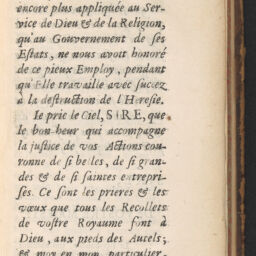 encore plus appliquée au Ser-
vice de Dieu & de la Religion,
qu'au Gouvernement de ses
Estats, ne nous avoit honoré
de ce pieux Employ, pendant
qu'Elle travaille avec succez
à la destruction de l'Heresie.
Ie prie le Ciel, SIRE, que
le bon-heur qui accompagne
la justice de vos Actions cou-
ronne de si belles, de si gran-
des & de si saintes entrepri-
ses. Ce sont les prieres & les
vœux que tous les Recollets
de vostre Royaume font à
Dieu, aux pieds des Autels;
& moy en mon particulier,